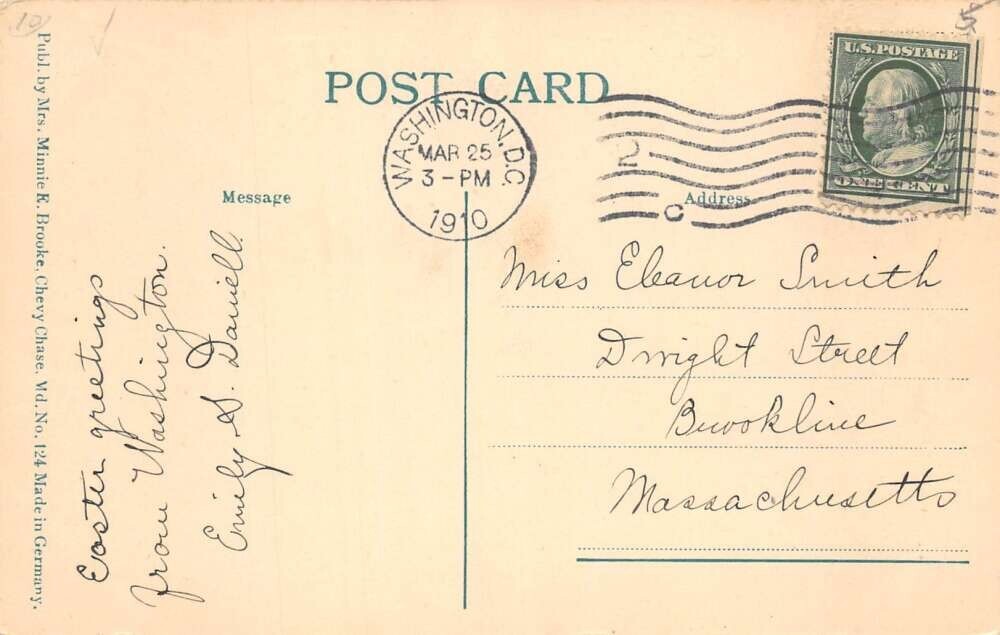 10
5
Publ. by Mrs. Minnie K. Brooke, Chevy Chase, Md. No. 124 Made in Germany.
POST CARD
WASHINGTON, D.C.
MAR 25
3 - PM
1910
2
C
U.S. POSTAGE
ONE CENT
Message
Easter greetings
from Washington.
Emily S. Daniell.
Address
Miss Eleanor Smith
Dwight Street
Brookline
Massachusetts